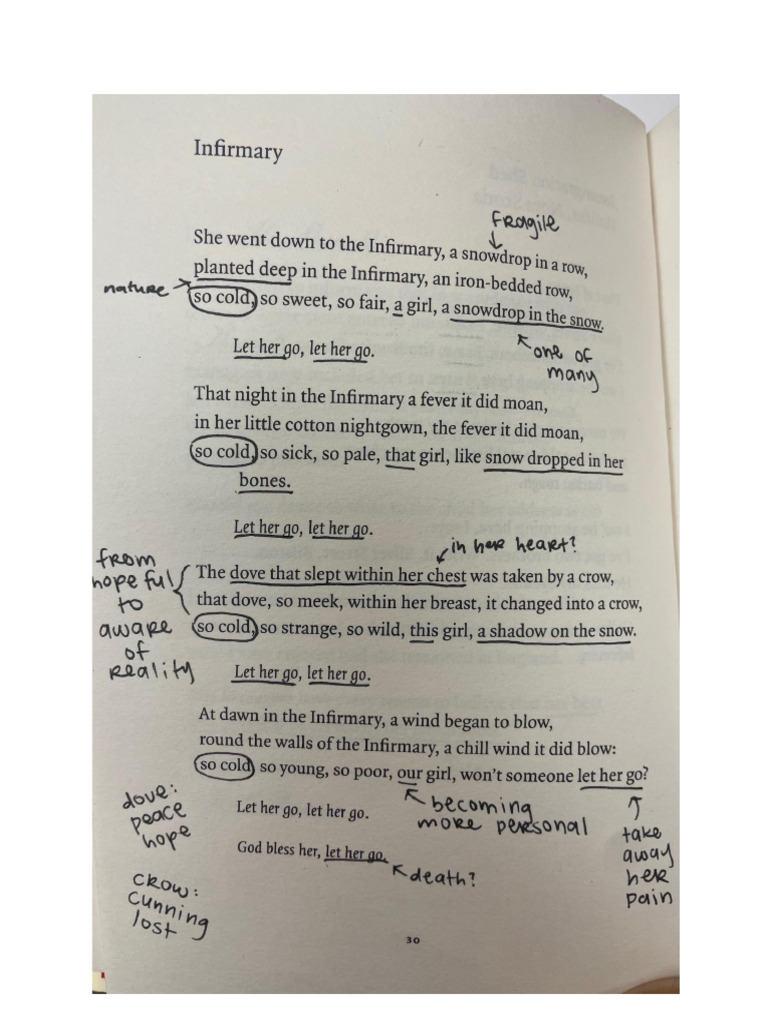 Infirmary
fragile
She went down to the Infirmary, a snowdrop in a row,
planted deep in the Infirmary, an iron-bedded row,
nature
so cold, so sweet, so fair, a girl, a snowdrop in the snow.
Let her go, let her go.
one of
many
That night in the Infirmary a fever it did moan,
in her little cotton nightgown, the fever it did moan,
so cold, so sick, so pale, that girl, like snow dropped in her
bones.
Let her go, let her go.
in her heart?
from
hopeful
to
aware
of
reality
The dove that slept within her chest was taken by a crow,
that dove, so meek, within her breast, it changed into a crow,
so cold, so strange, so wild, this girl, a shadow on the snow.
Let her go, let her go.
At dawn in the Infirmary, a wind began to blow,
round the walls of the Infirmary, a chill wind it did blow:
so cold, so young, so poor, our girl, won't someone let her go?
dove:
peace
hope
Let her go, let her go.
becoming
more personal
take
away
her
pain
God bless her, let her go.
death?
crow:
cunning
lost
30